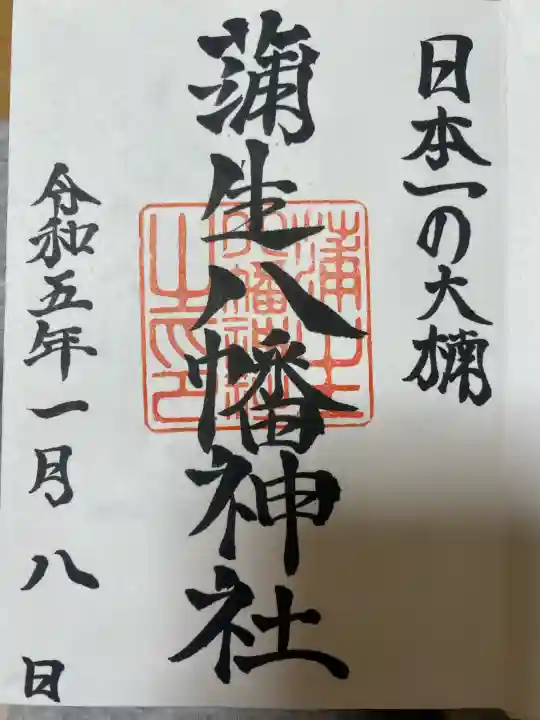 日本一の大楠
蒲生八幡神社
令和五年一月八日
蒲生
八幡神社
之印